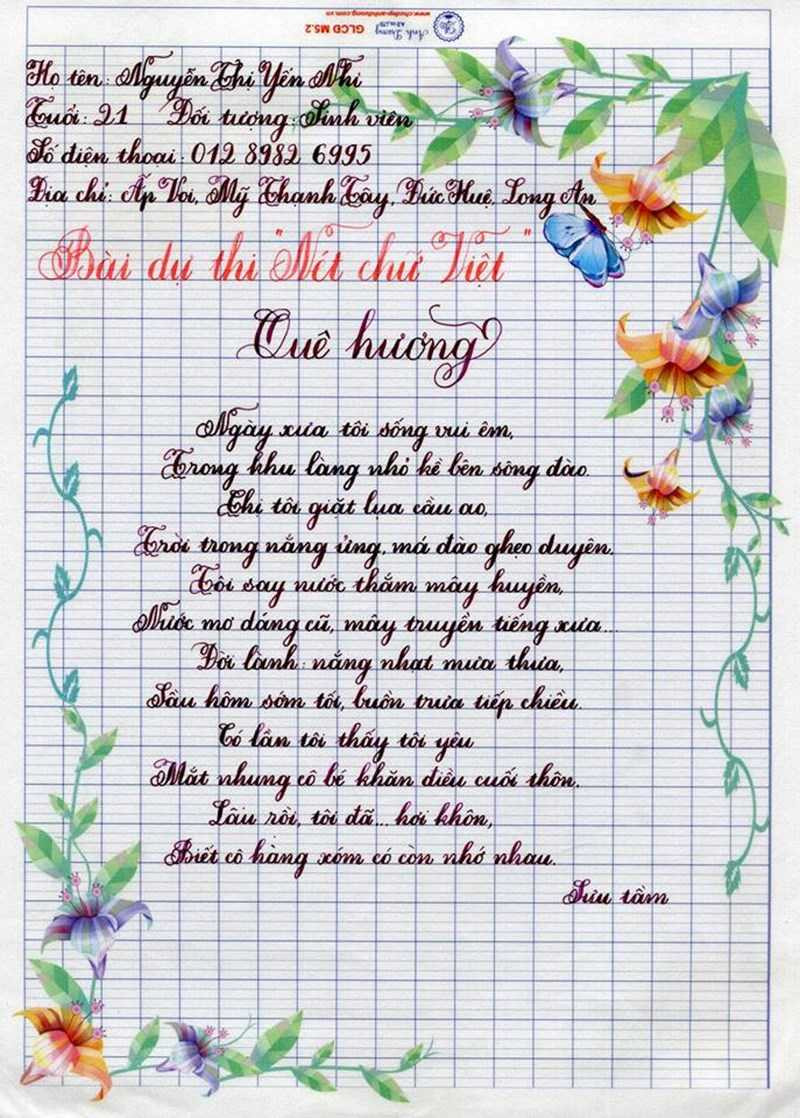 www.chudep-anhduong.com.vn
GLCD M5.2
Ánh Dương
Họ tên: Nguyễn Thị Yến Nhi
Tuổi: 21 Đối tượng: Sinh viên
Số điện thoại: 012 8982 6995
Địa chỉ: Ấp Voi, Mỹ Thạnh Tây, Đức Huệ, Long An
Bài dự thi "Nét chữ Việt"
Quê hương
Ngày xưa tôi sống vui êm,
Trong khu làng nhỏ kề bên sông đào.
Chị tôi giặt lụa cầu ao,
Trời trong nắng ửng, má đào ghẹo duyên.
Tôi say nước thắm mây huyền,
Nước mơ dáng cũ, mây truyền tiếng xưa...
Đời lành: nắng nhạt mưa thưa,
Sầu hôm sớm tối, buồn trưa tiếp chiều.
Có lần tôi thấy tôi yêu
Mắt nhung cô bé khăn điều cuối thôn.
Lâu rồi, tôi đã... hơi khôn,
Biết cô hàng xóm có còn nhớ nhau.
Sưu tầm